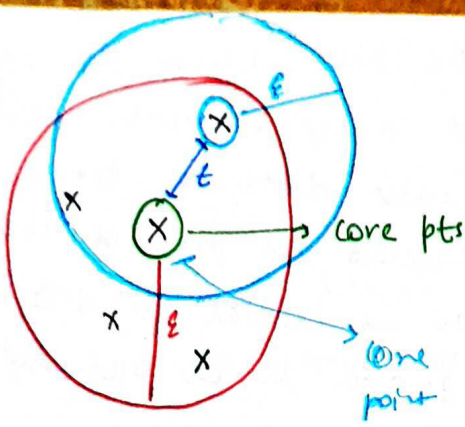 x
ε
x
t
x
x
core pts
x
ε
x
core
point